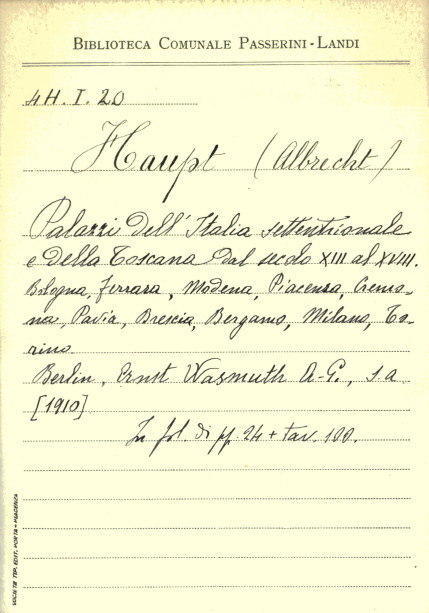 BIBLIOTECA COMUNALE PASSERINI-LANDI
4H. I. 20
Haupt (Albrecht)
Palazzi dell'Italia settentrionale
e della Toscana dal secolo XIII al XVIII.
Bologna, Ferrara, Modena, Piacenza, Cremo-
na, Pavia, Brescia, Bergamo, Milano, To-
rino
Berlin, Ernst Wasmuth A-G., s.a
[1910]
In fol. di pp. 24 + tav. 100.
TIP. EDIT. PORTA - PIACENZA